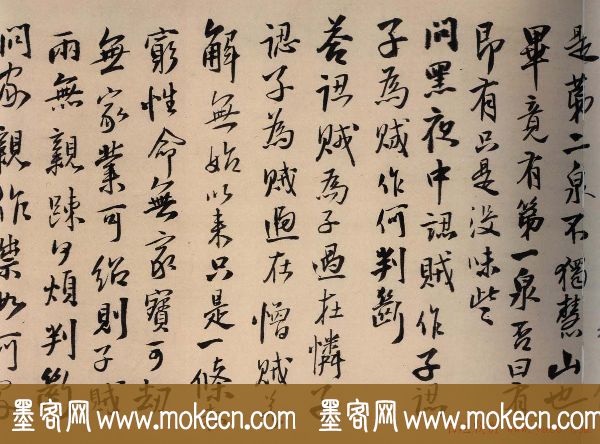 是第二泉不獨慧山也
畢竟有第一泉否曰有
即有只是没味些
問黑夜中認賊作子認
子為賊作何判斷
答認賊為子過在憐子
認子為賊過在憎賊
解無始以来只是一條
窮性命無家寶可劫
無家業可紹則子賊
両無親踈何煩判斷
問家親作祟如何
墨客网 www.mokecn.com 墨客网 www.mokecn.com